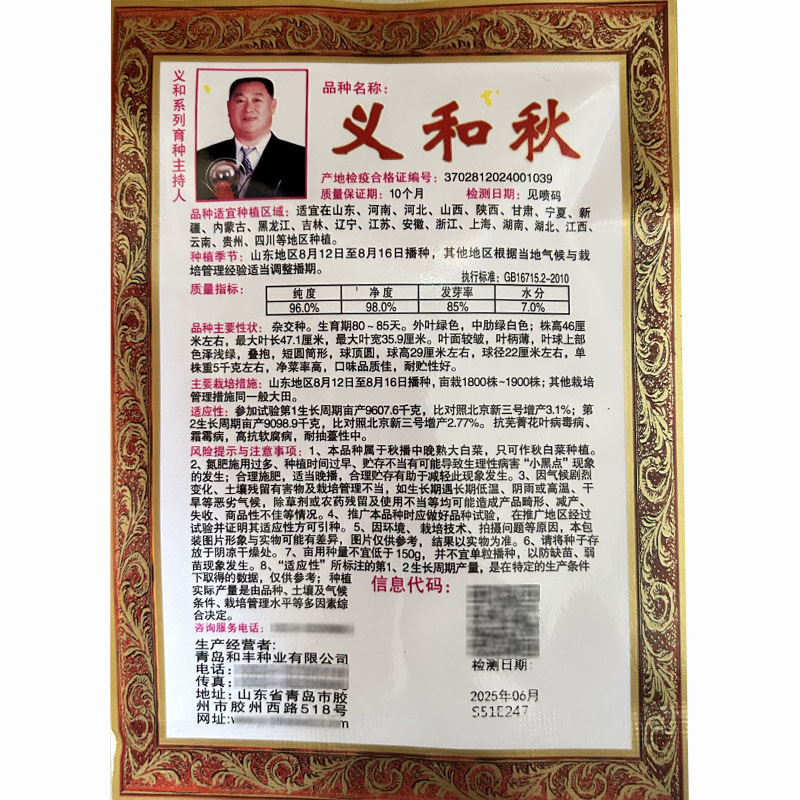 义和系列育种主持人
品种名称：
义和秋
产地检疫合格证编号：3702812024001039
质量保证期：10个月 检测日期：见喷码
品种适宜种植区域：适宜在山东、河南、河北、山西、陕西、甘肃、宁夏、新
疆、内蒙古、黑龙江、吉林、辽宁、江苏、安徽、浙江、上海、湖南、湖北、江西、
云南、贵州、四川等地区种植。
种植季节：山东地区8月12日至8月16日播种，其他地区根据当地气候与栽
培管理经验适当调整播期。
执行标准：GB16715.2-2010
质量指标：
纯度 净度 发芽率 水分
96.0% 98.0% 85% 7.0%
品种主要性状：杂交种。生育期80~85天。外叶绿色，中肋绿白色；株高46厘
米左右，最大叶长47.1厘米，最大叶宽35.9厘米。叶面较皱，叶柄薄，叶球上部
色泽浅绿，叠抱，短圆筒形，球顶圆，球高29厘米左右，球径22厘米左右，单
株重5千克左右，净菜率高，口味品质佳，耐贮性好。
主要栽培措施：山东地区8月12日至8月16日播种，亩栽1800株~1900株；其他栽培
管理措施同一般大田。
适应性：参加试验第1生长周期亩产9607.6千克，比对照北京新三号增产3.1%；第
2生长周期亩产9098.9千克，比对照北京新三号增产2.77%。抗芜菁花叶病毒病、
霜霉病，高抗软腐病，耐抽薹性中。
风险提示与注意事项：1、本品种属于秋播中晚熟大白菜，只可作秋白菜种植。
2、氮肥施用过多、种植时间过早、贮存不当有可能导致生理性病害“小黑点”现象
的发生；合理施肥，适当晚播，合理贮存有助于减轻此现象发生。3、因气候剧烈
变化、土壤残留有害物及栽培管理不当，如生长期遇长期低温、阴雨或高温、干
旱等恶劣气候，除草剂或农药残留及使用不当等均可能造成产品畸形、减产、
失收、商品性不佳等情况。4、推广本品种时应做好品种试验，在推广地区经过
试验并证明其适应性方可引种。5、因环境、栽培技术、拍摄问题等原因，本包
装图片形象与实物可能有差异，图片仅供参考，结果以实物为准。6、请将种子存
放于阴凉干燥处。7、亩用种量不宜低于150g，并不宜单粒播种，以防缺苗、弱
苗现象发生。8、“适应性”所标注的第1、2生长周期产量，是在特定的生产条件
下取得的数据，仅供参考；种植
实际产量是由品种、土壤及气候
条件、栽培管理水平等多因素综
合决定。
信息代码：
咨询服务电话：
生产经营者：
青岛和丰种业有限公司
电话：
传真：
地址：山东省青岛市胶
州市胶州西路518号
网址：
检测日期：
2025年06月
S51E247